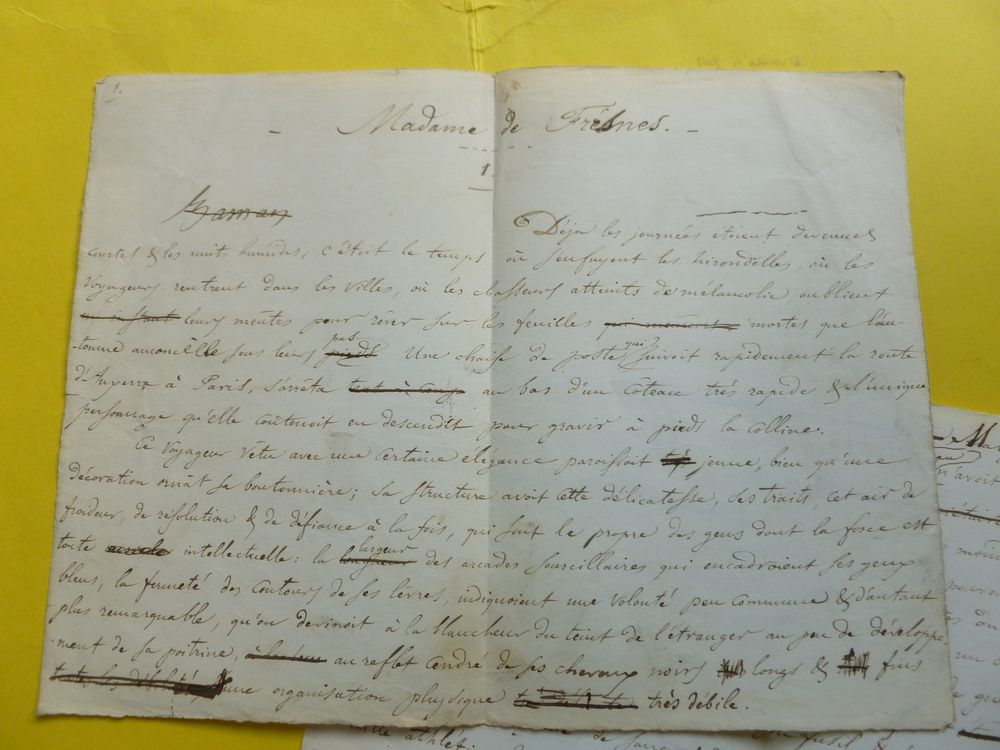 - Madame de Frésnes. -
1.
Maman
Déja les journées etoient devenues
courtes & les nuits humides; c'étoit le temps où s'enfuyent les hirondelles, où les
voyageurs rentrent dans les villes, où les chasseurs atteints de mélancolie, oublient
un instant leurs meutes pour rêver sur les feuilles qui meurent mortes que l'au-
tomne amoncèle sous leurs pieds pas. Une chaise de poste qui suivoit rapidement la route
d'Auxerre à Paris, s'arrêta tout à coup au bas d'un côteau très rapide & l'unique
personnage qu'elle contenoit en descendit pour gravir à pieds la colline.
Ce voyageur vêtu avec une certaine élégance paroissoit très jeune, bien qu'une
décoration ornât sa boutonnière; sa structure avoit cette délicatesse, ses traits, cet air de
froideur, de résolution & de défiance à la fois, qui sont le propre des gens dont la force est
toute morale intellectuelle: la longueur largeur des arcades sourcillaires qui encadroient ses yeux
bleus, la fermeté des contours de ses lèvres, indiquoient une volonté peu commune & d'autant
plus remarquable, qu'on devinoit à la blancheur du teint de l'étranger au peu de développe-
ment de sa poitrine, au reflet cendré de ses cheveux noirs longs & fins
une organisation physique très débile.